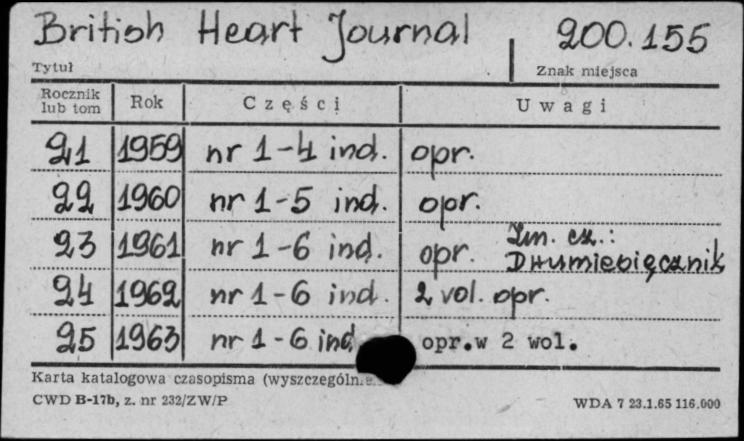 British Heart Journal 200.155
Tytuł Znak miejsca
Rocznik lub tom Rok Części Uwagi
21 1959 nr 1-4 ind. opr.
22 1960 nr 1-5 ind. opr.
23 1961 nr 1-6 ind. opr. Zm. cz.: Dwumiesięcznik
24 1962 nr 1-6 ind. 2 vol. opr.
25 1963 nr 1-6 ind opr.w 2 wol.
Karta katalogowa czasopisma
CWD B-17b, z. nr 232/ZW/P WDA 7 23.1.65 116.000